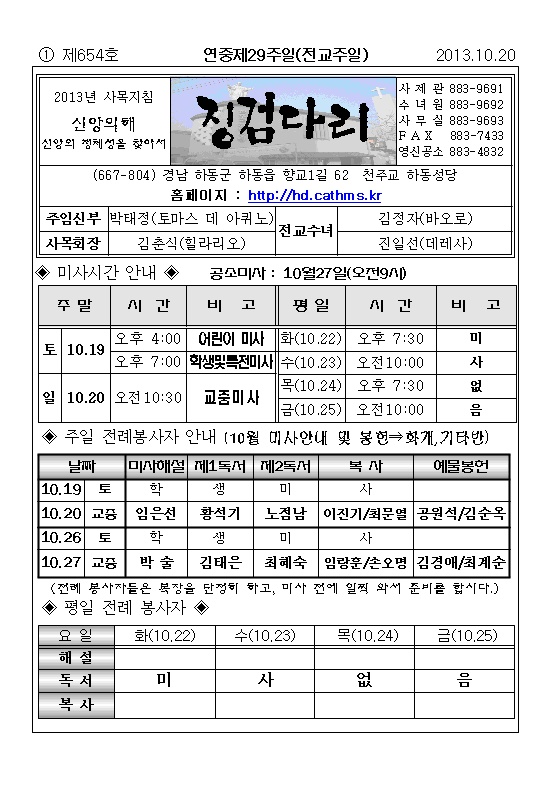 ① 제654호 연중제29주일(전교주일) 2013.10.20
2013년 사목지침
신앙의해
신앙의 정체성을 찾아서
징검다리
사 제 관 883-9691
수 녀 원 883-9692
사 무 실 883-9693
F A X 883-7433
영신공소 883-4832
(667-804) 경남 하동군 하동읍 향교1길 62 천주교 하동성당
홈페이지 : http://hd.cathms.kr
주임신부 박태정(토마스 데 아퀴노) 전교수녀 김정자(바오로)
사목회장 김춘식(힐라리오) 진일선(데레사)
◈ 미사시간 안내 ◈ 공소미사 : 10월27일(오전9시)
주 말 시 간 비 고 평 일 시 간 비 고
토 10.19 오후 4:00 어린이 미사 화(10.22) 오후 7:30 미
오후 7:00 학생및특전미사 수(10.23) 오전10:00 사
일 10.20 오전10:30 교중미사 목(10.24) 오후 7:30 없
금(10.25) 오전10:00 음
◈ 주일 전례봉사자 안내 (10월 미사안내 및 봉헌⇒화개,기타반)
날짜 미사해설 제1독서 제2독서 복 사 예물봉헌
10.19 토 학 생 미 사
10.20 교중 임은선 황석기 노점남 이진기/최문열 공원석/김순옥
10.26 토 학 생 미 사
10.27 교중 박 술 김태은 최혜숙 임랑훈/손오명 김경애/최계순
(전례 봉사자들은 복장을 단정히 하고, 미사 전에 일찍 와서 준비를 합시다.)
◈ 평일 전례 봉사자 ◈
요 일 화(10.22) 수(10.23) 목(10.24) 금(10.25)
해 설
독 서 미 사 없 음
복 사